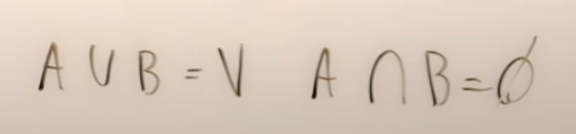 A ∪ B = V A ∩ B = ∅